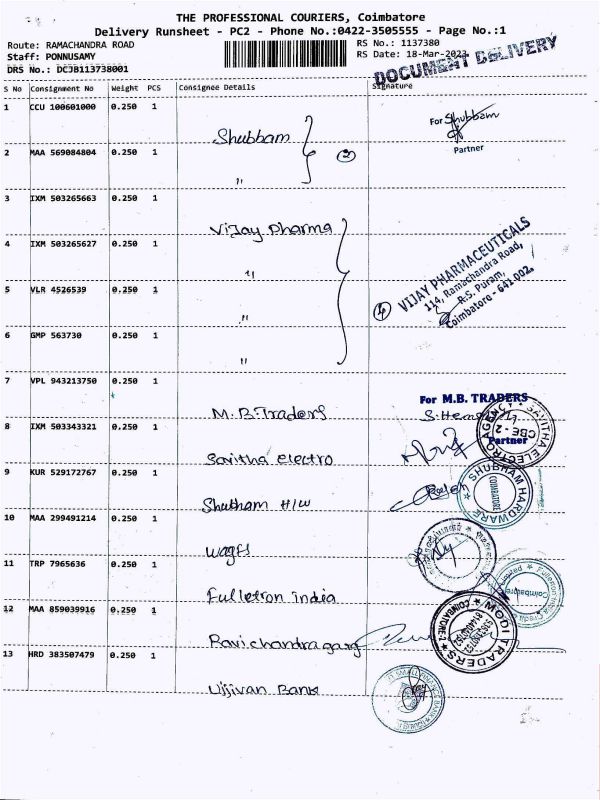 THE PROFESSIONAL COURIERS, Coimbatore
Delivery Runsheet - PC2 - Phone No.:0422-3505555 - Page No.:1
Route: RAMACHANDRA ROAD
RS No.: 1137380
Staff: PONNUSAMY
RS Date: 18-Mar-2023
DRS No.: DCJB113738001
DOCUMENT DELIVERY
S No Consignment No Weight PCS Consignee Details Signature
1 CCU 100601000 0.250 1
Shubham
(2)
For Shubham
Partner
2 MAA 569084804 0.250 1
"
3 IXM 503265663 0.250 1
Vijay pharma
4 IXM 503265627 0.250 1
"
VIJAY PHARMACEUTICALS
114, Ramachandra Road,
R.S. Puram,
Coimbatore - 641 002.
5 VLR 4526539 0.250 1
"
(4)
6 GMP 563730 0.250 1
"
7 VPL 943213750 0.250 1
M.B.Traders
For M.B. TRADERS
Partner
8 IXM 503343321 0.250 1
Savitha electro
SAVITHA ELECTRO AGENCY
CBE - 2
9 KUR 529172767 0.250 1
Shubham H/W
SHUBHAM HARDWARE
COIMBATORE
10 MAA 299491214 0.250 1
11 TRP 7965636 0.250 1
Fulletron india
12 MAA 859039916 0.250 1
Ravichandra garg
MODI TRADERS
COIMBATORE-2
13 HRD 383507479 0.250 1
Ujjivan Bank
SMALL FINANCE BANK